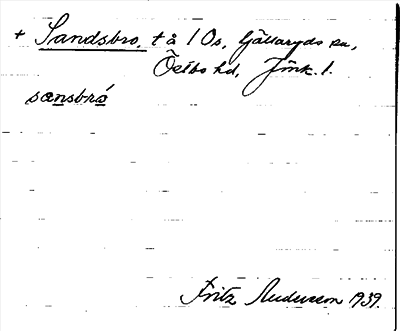 + Sandsbro, t å 1 Os, Gällaryds sn,
Östbo hd, Jönk. l.
sansbro
Fritz Andersson 1939.